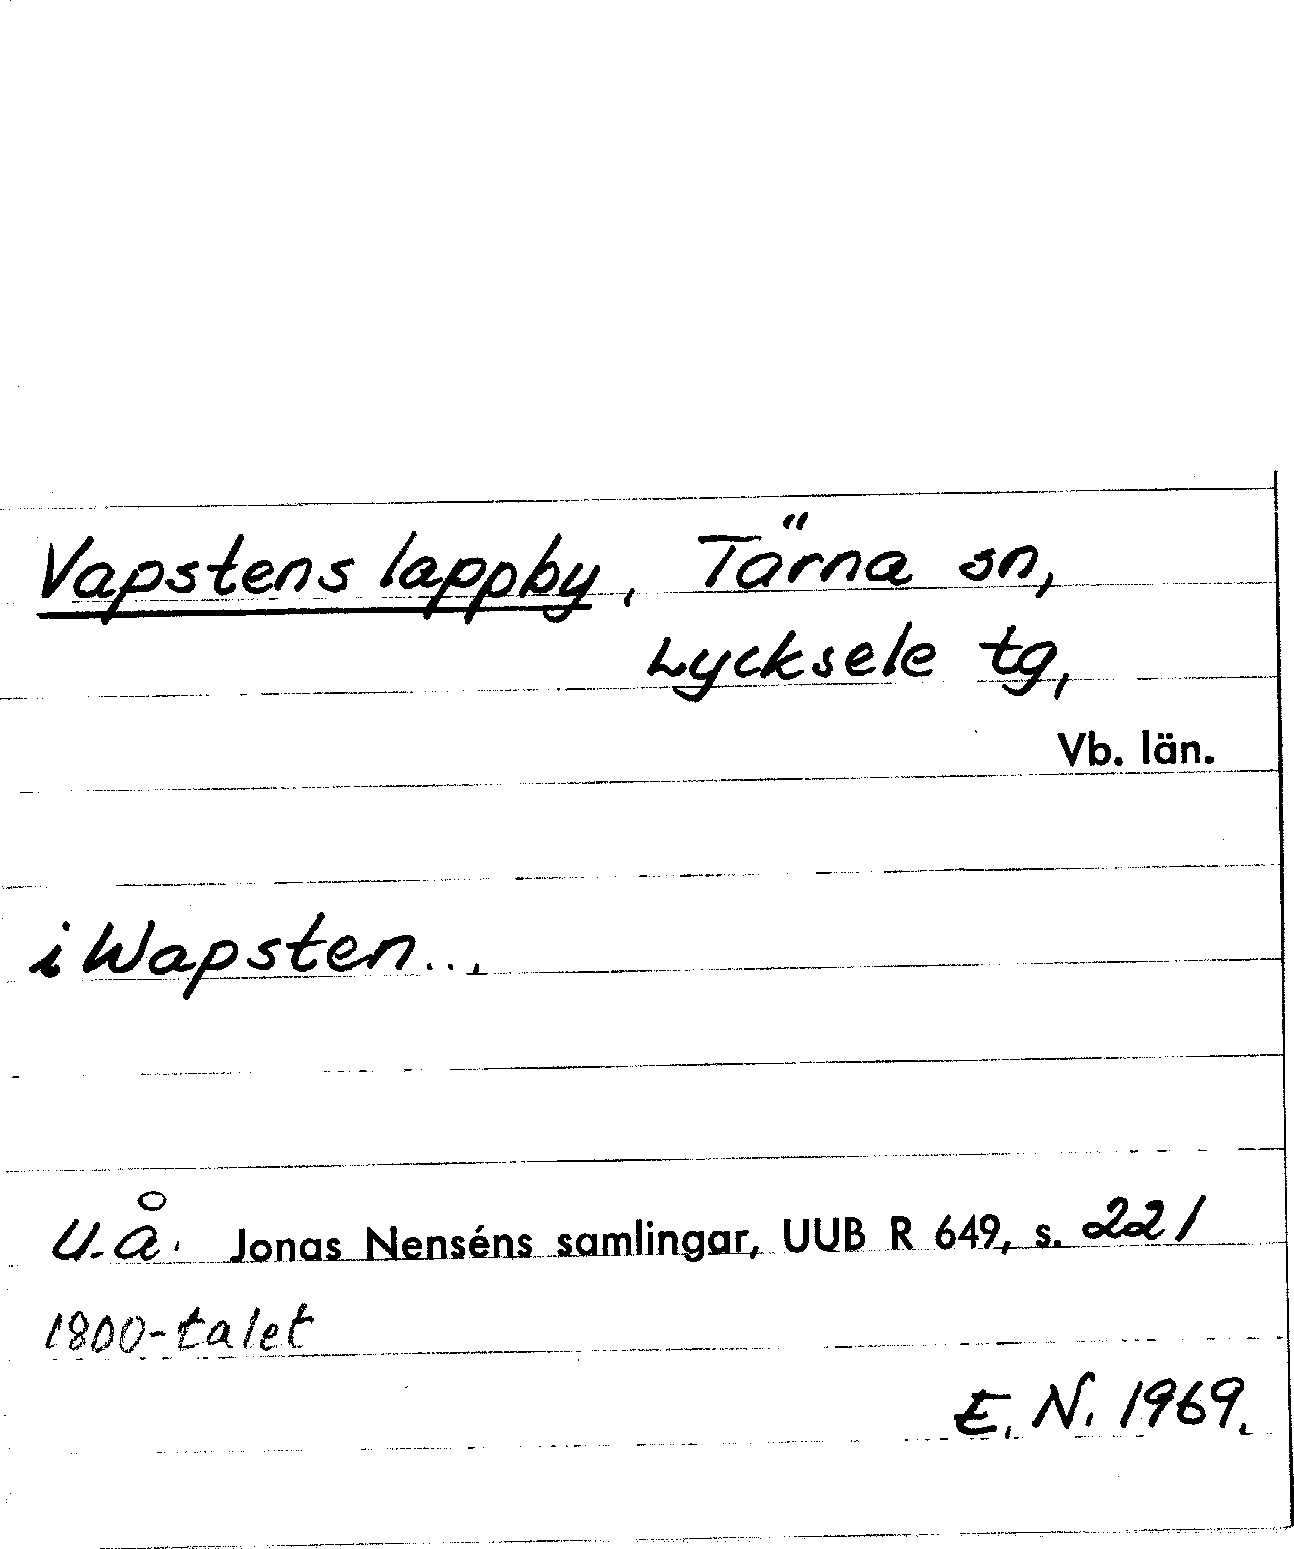 Vapstens lappby, Tärna sn,
Lycksele tg,
Vb. län.
i Wapsten...
U.å. Jonas Nenséns samlingar, UUB R 649, s. 221
1800-talet
E. N. 1969.